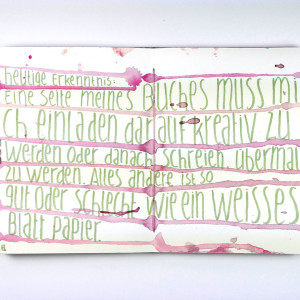 heutige Erkenntnis:
Eine Seite meines Buches muss mi
ch einladen darauf kreativ zu
werden oder danach schreien übermalt
zu werden. Alles andere ist so
gut oder schlecht wie ein weisses
Blatt Papier.